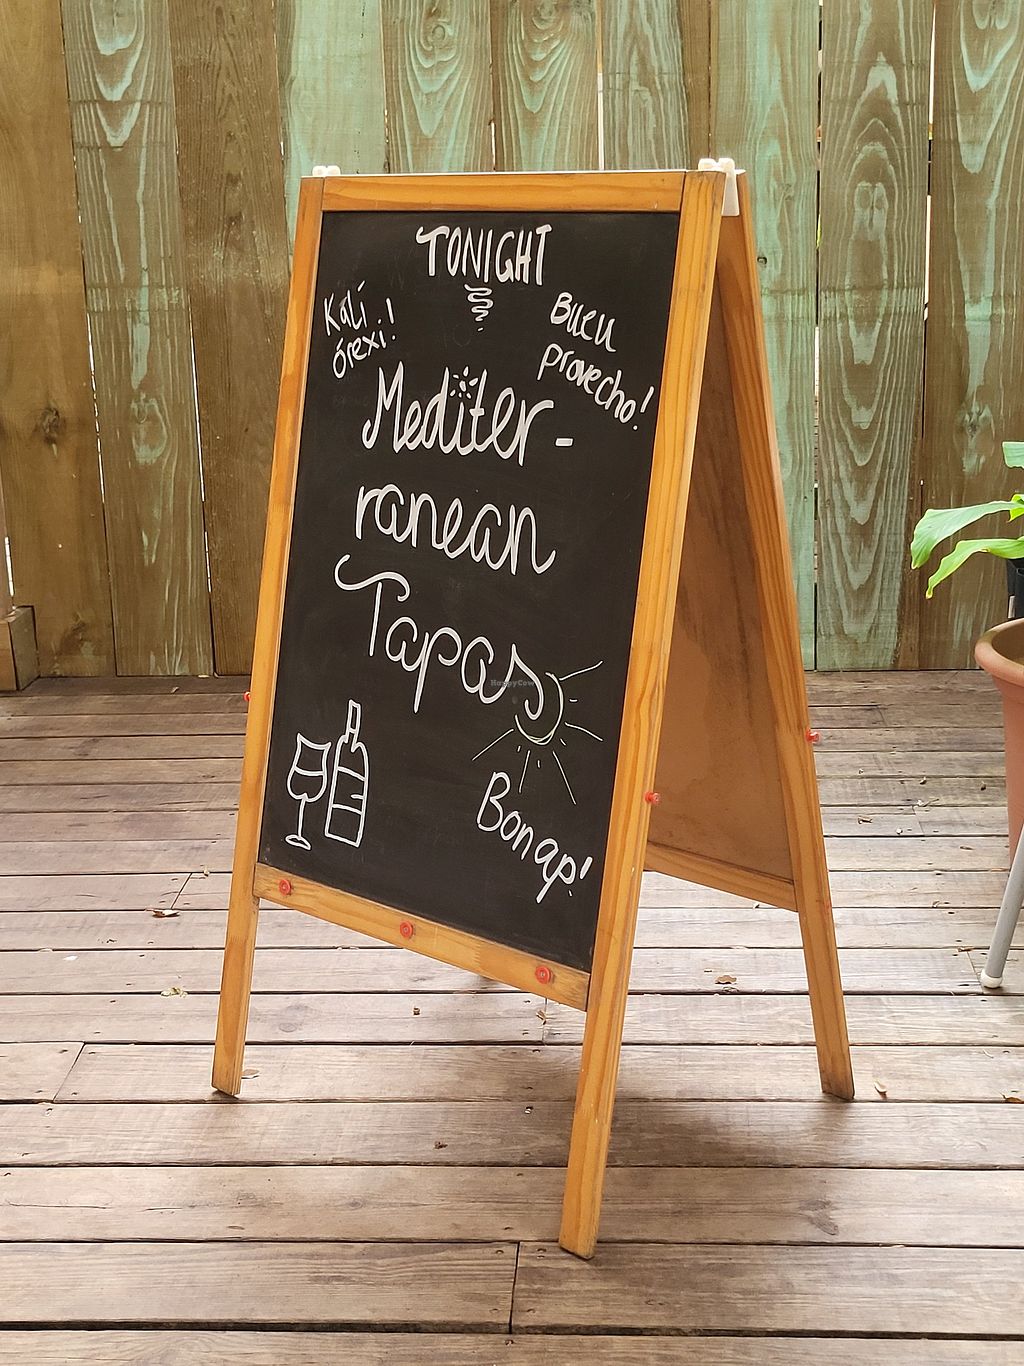 TONIGHT
Kalí
órexi!
Buen
provecho!
Mediter-
ranean
Tapas
HappyCow
Bon ap'